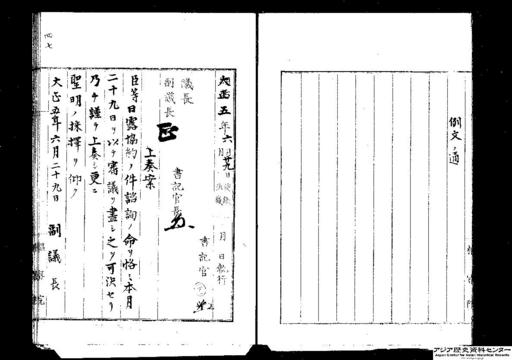 例文ノ通
大正五年六月廿九日
月 日
議長
副議長
書記官長
書記官
上奏案
臣等日露協約ノ件諮詢ノ命ヲ恪ミ本月
二十九日ヲ以テ審議ヲ盡シ之ヲ可決セリ
乃チ謹テ上奏シ更ニ
聖明ノ採擇ヲ仰ク
大正五年六月二十九日
副議長
四七
アジア歴史資料センター
Japan Center for Asian Historical Records